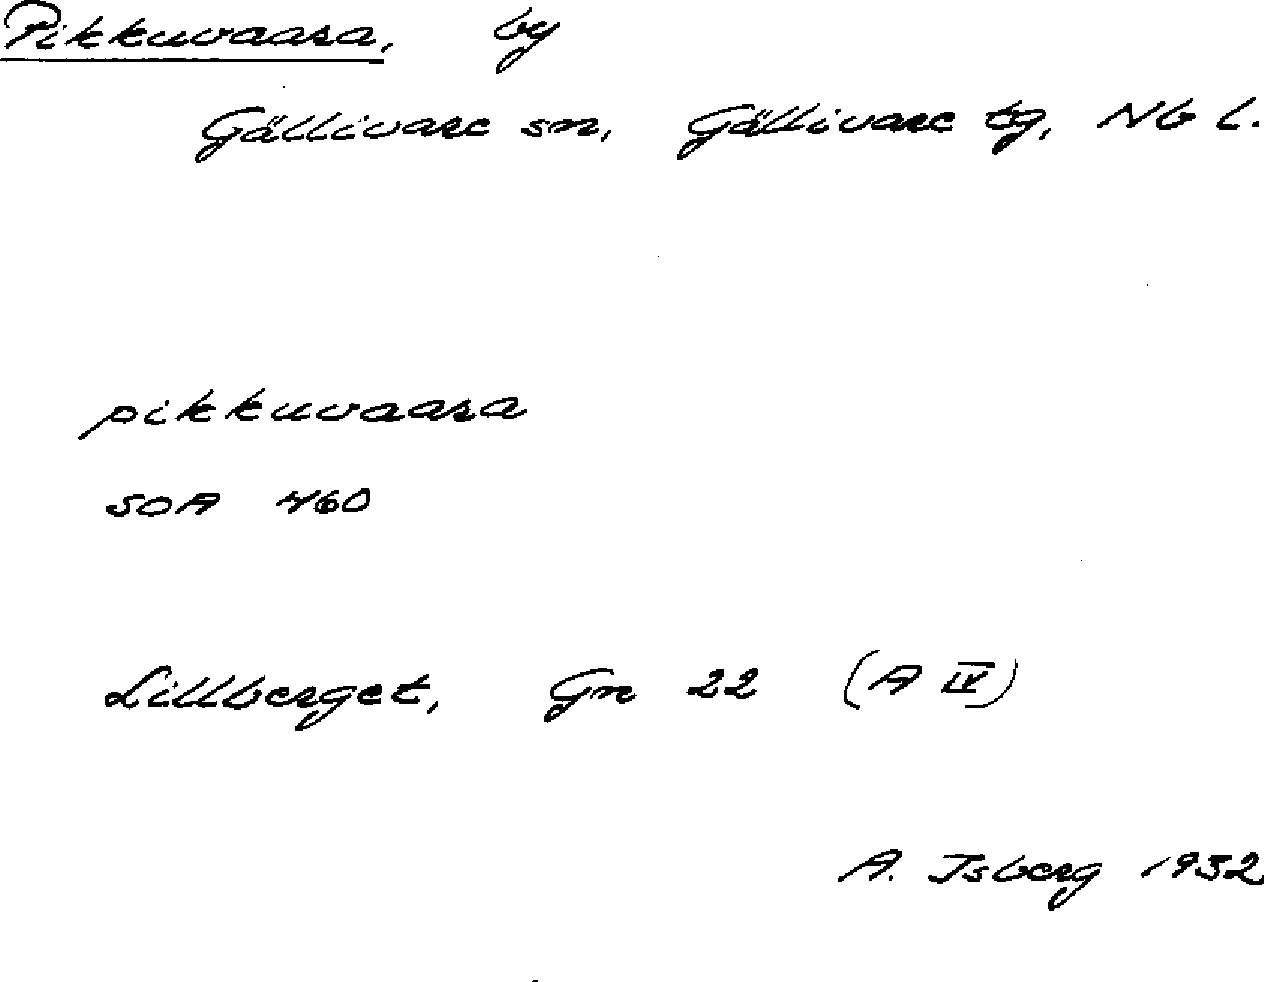 Pikkuvaara, by
Gällivare sn, Gällivare tg, Nb l.
pikkuvaara
SOA 460
Lillberget, Gn 22 (A IV)
A. Isberg 1932